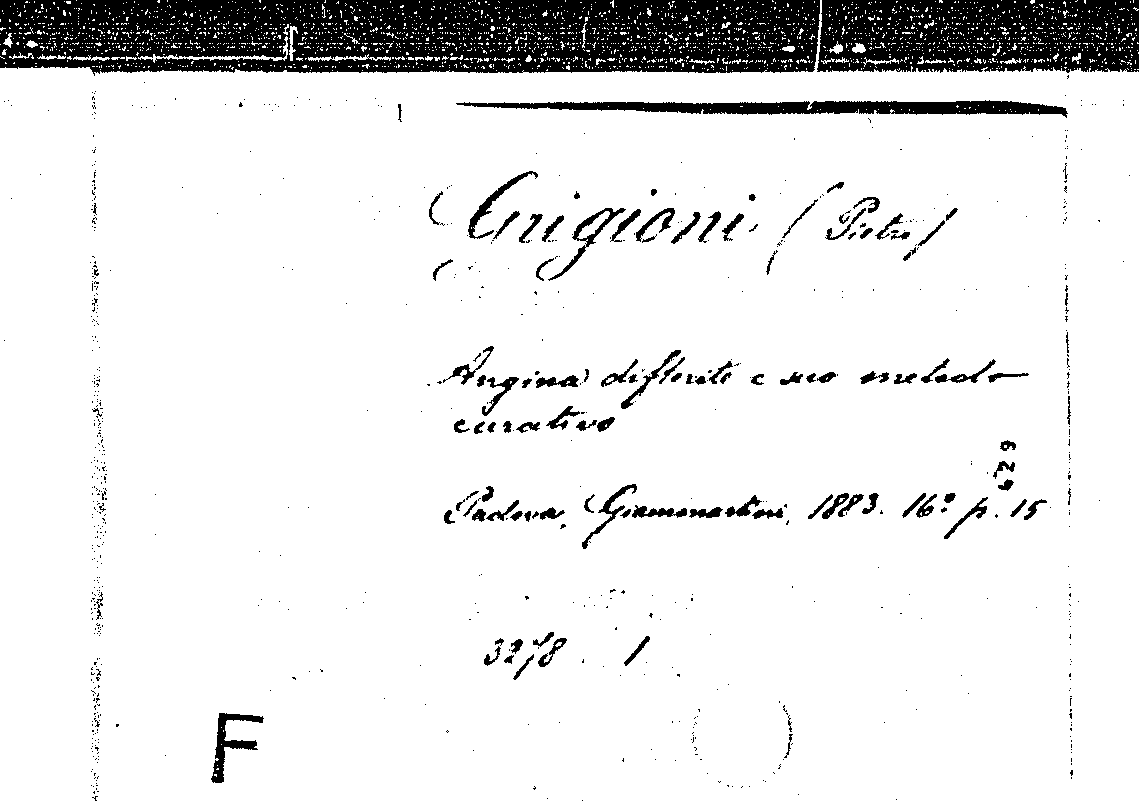 Grigioni (Pietro)
Angina difterite e suo metodo
curativo
629
Padova, Giammartini, 1883. 16º p. 15
3278 1
F